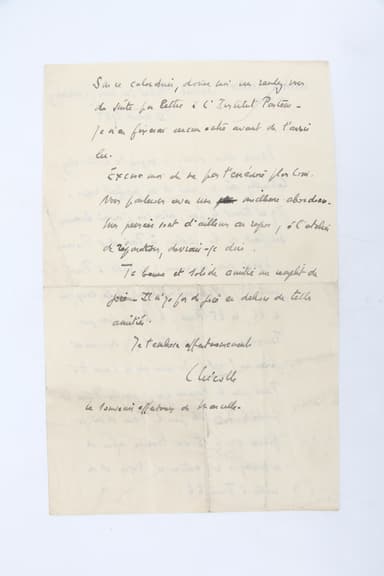 Sur ce calendrier, donne moi un rendez vous
de suite par lettre à l'Institut Pasteur -
Je n'en fixerai aucun autre avant de l'avoir
lu.
Excuse moi de ne pas t'en écrire plus long.
Nous parlerons avec une meilleure
Mes pensées sont d'ailleurs au repos, à l'atelier
de réparation, devrais-je dire.
Ta bonne et solide amitié me remplit de
joie - Il n'y a pas de joie en dehors de telles
amitiés.
Je t'embrasse affectueusement
CNicolle
Le souvenir affectueux de Marcelle.